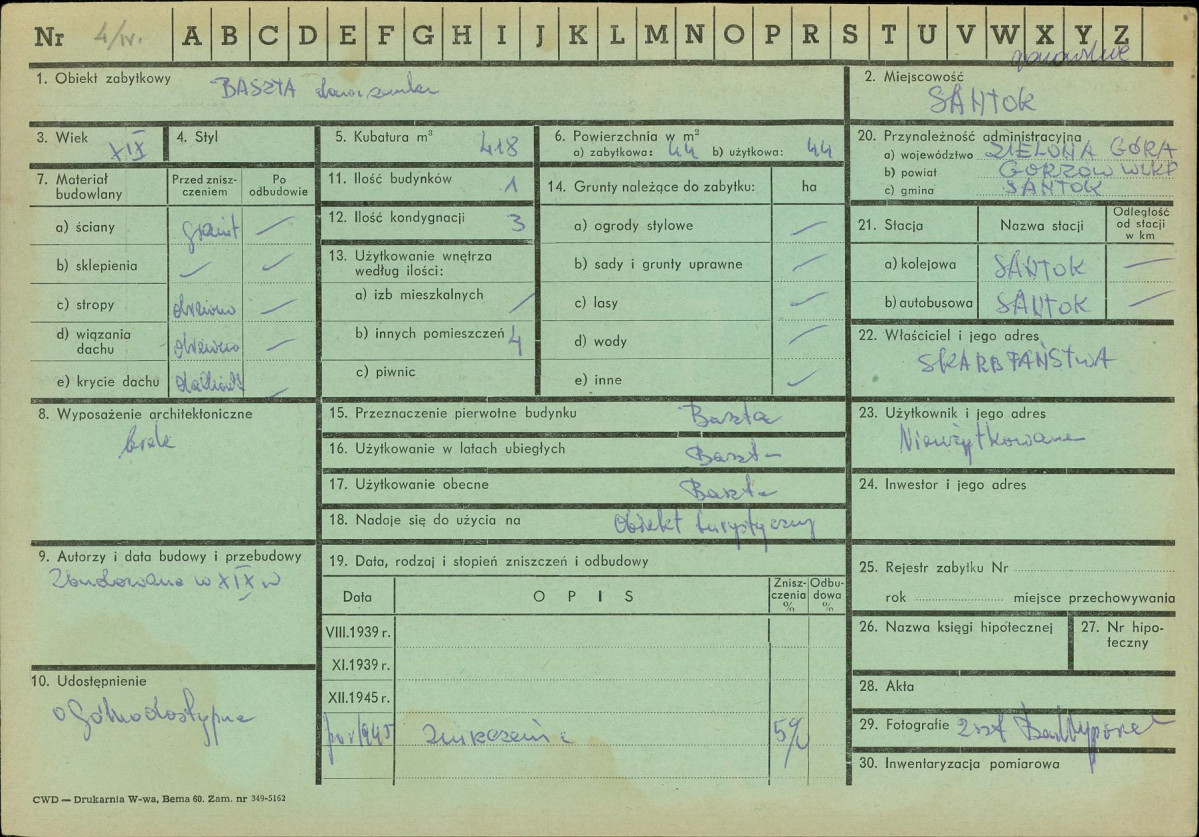 Nr 4/IV. A B C D E F G H I J K L M N O P R S T U V W X Y Z
1. Obiekt zabytkowy BASZTA
2. Miejscowość
SANTOK
3. Wiek XIX
4. Styl
5. Kubatura m³ 418
6. Powierzchnia w m²
a) zabytkowa: 44 b) użytkowa: 44
20. Przynależność administracyjna
a) województwo ZIELONA GÓRA
b) powiat GORZÓW WLKP
c) gmina SANTOK
7. Materiał budowlany
Przed znisz-
czeniem
Po
odbudowie
a) ściany granit —
b) sklepienia — —
c) stropy drewno —
d) wiązania
dachu drewno —
e) krycie dachu —
11. Ilość budynków 1
12. Ilość kondygnacji 3
13. Użytkowanie wnętrza
według ilości:
a) izb mieszkalnych /
b) innych pomieszczeń 4
c) piwnic
14. Grunty należące do zabytku: ha
a) ogrody stylowe —
b) sady i grunty uprawne —
c) lasy —
d) wody —
e) inne —
21. Stacja Nazwa stacji
Odległość
od stacji
w km
a) kolejowa SANTOK —
b) autobusowa SANTOK —
22. Właściciel i jego adres
SKARB PAŃSTWA
8. Wyposażenie architektoniczne
brak
15. Przeznaczenie pierwotne budynku Baszta
16. Użytkowanie w latach ubiegłych Baszta
17. Użytkowanie obecne Baszta
18. Nadaje się do użycia na Obiekt turystyczny
23. Użytkownik i jego adres
Nieużytkowane
24. Inwestor i jego adres
9. Autorzy i data budowy i przebudowy
Zbudowana w XIX w
19. Data, rodzaj i stopień zniszczeń i odbudowy
Data OPIS
Znisz-
czenia
%
Odbu-
dowa
%
VIII.1939 r.
XI.1939 r.
XII.1945 r.
po r/1945 zniszczenia 5%
25. Rejestr zabytku Nr
rok miejsce przechowywania
26. Nazwa księgi hipotecznej
27. Nr hipo-
teczny
10. Udostępnienie
ogólnodostępne
28. Akta
29. Fotografie 2 szt
30. Inwentaryzacja pomiarowa
CWD — Drukarnia W-wa, Bema 60. Zam. nr 349-5162